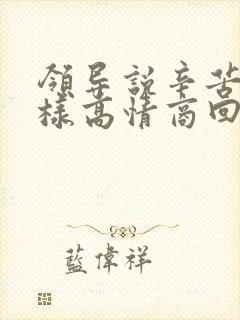 領导説辛苦
樣高情商回
藍偉祥